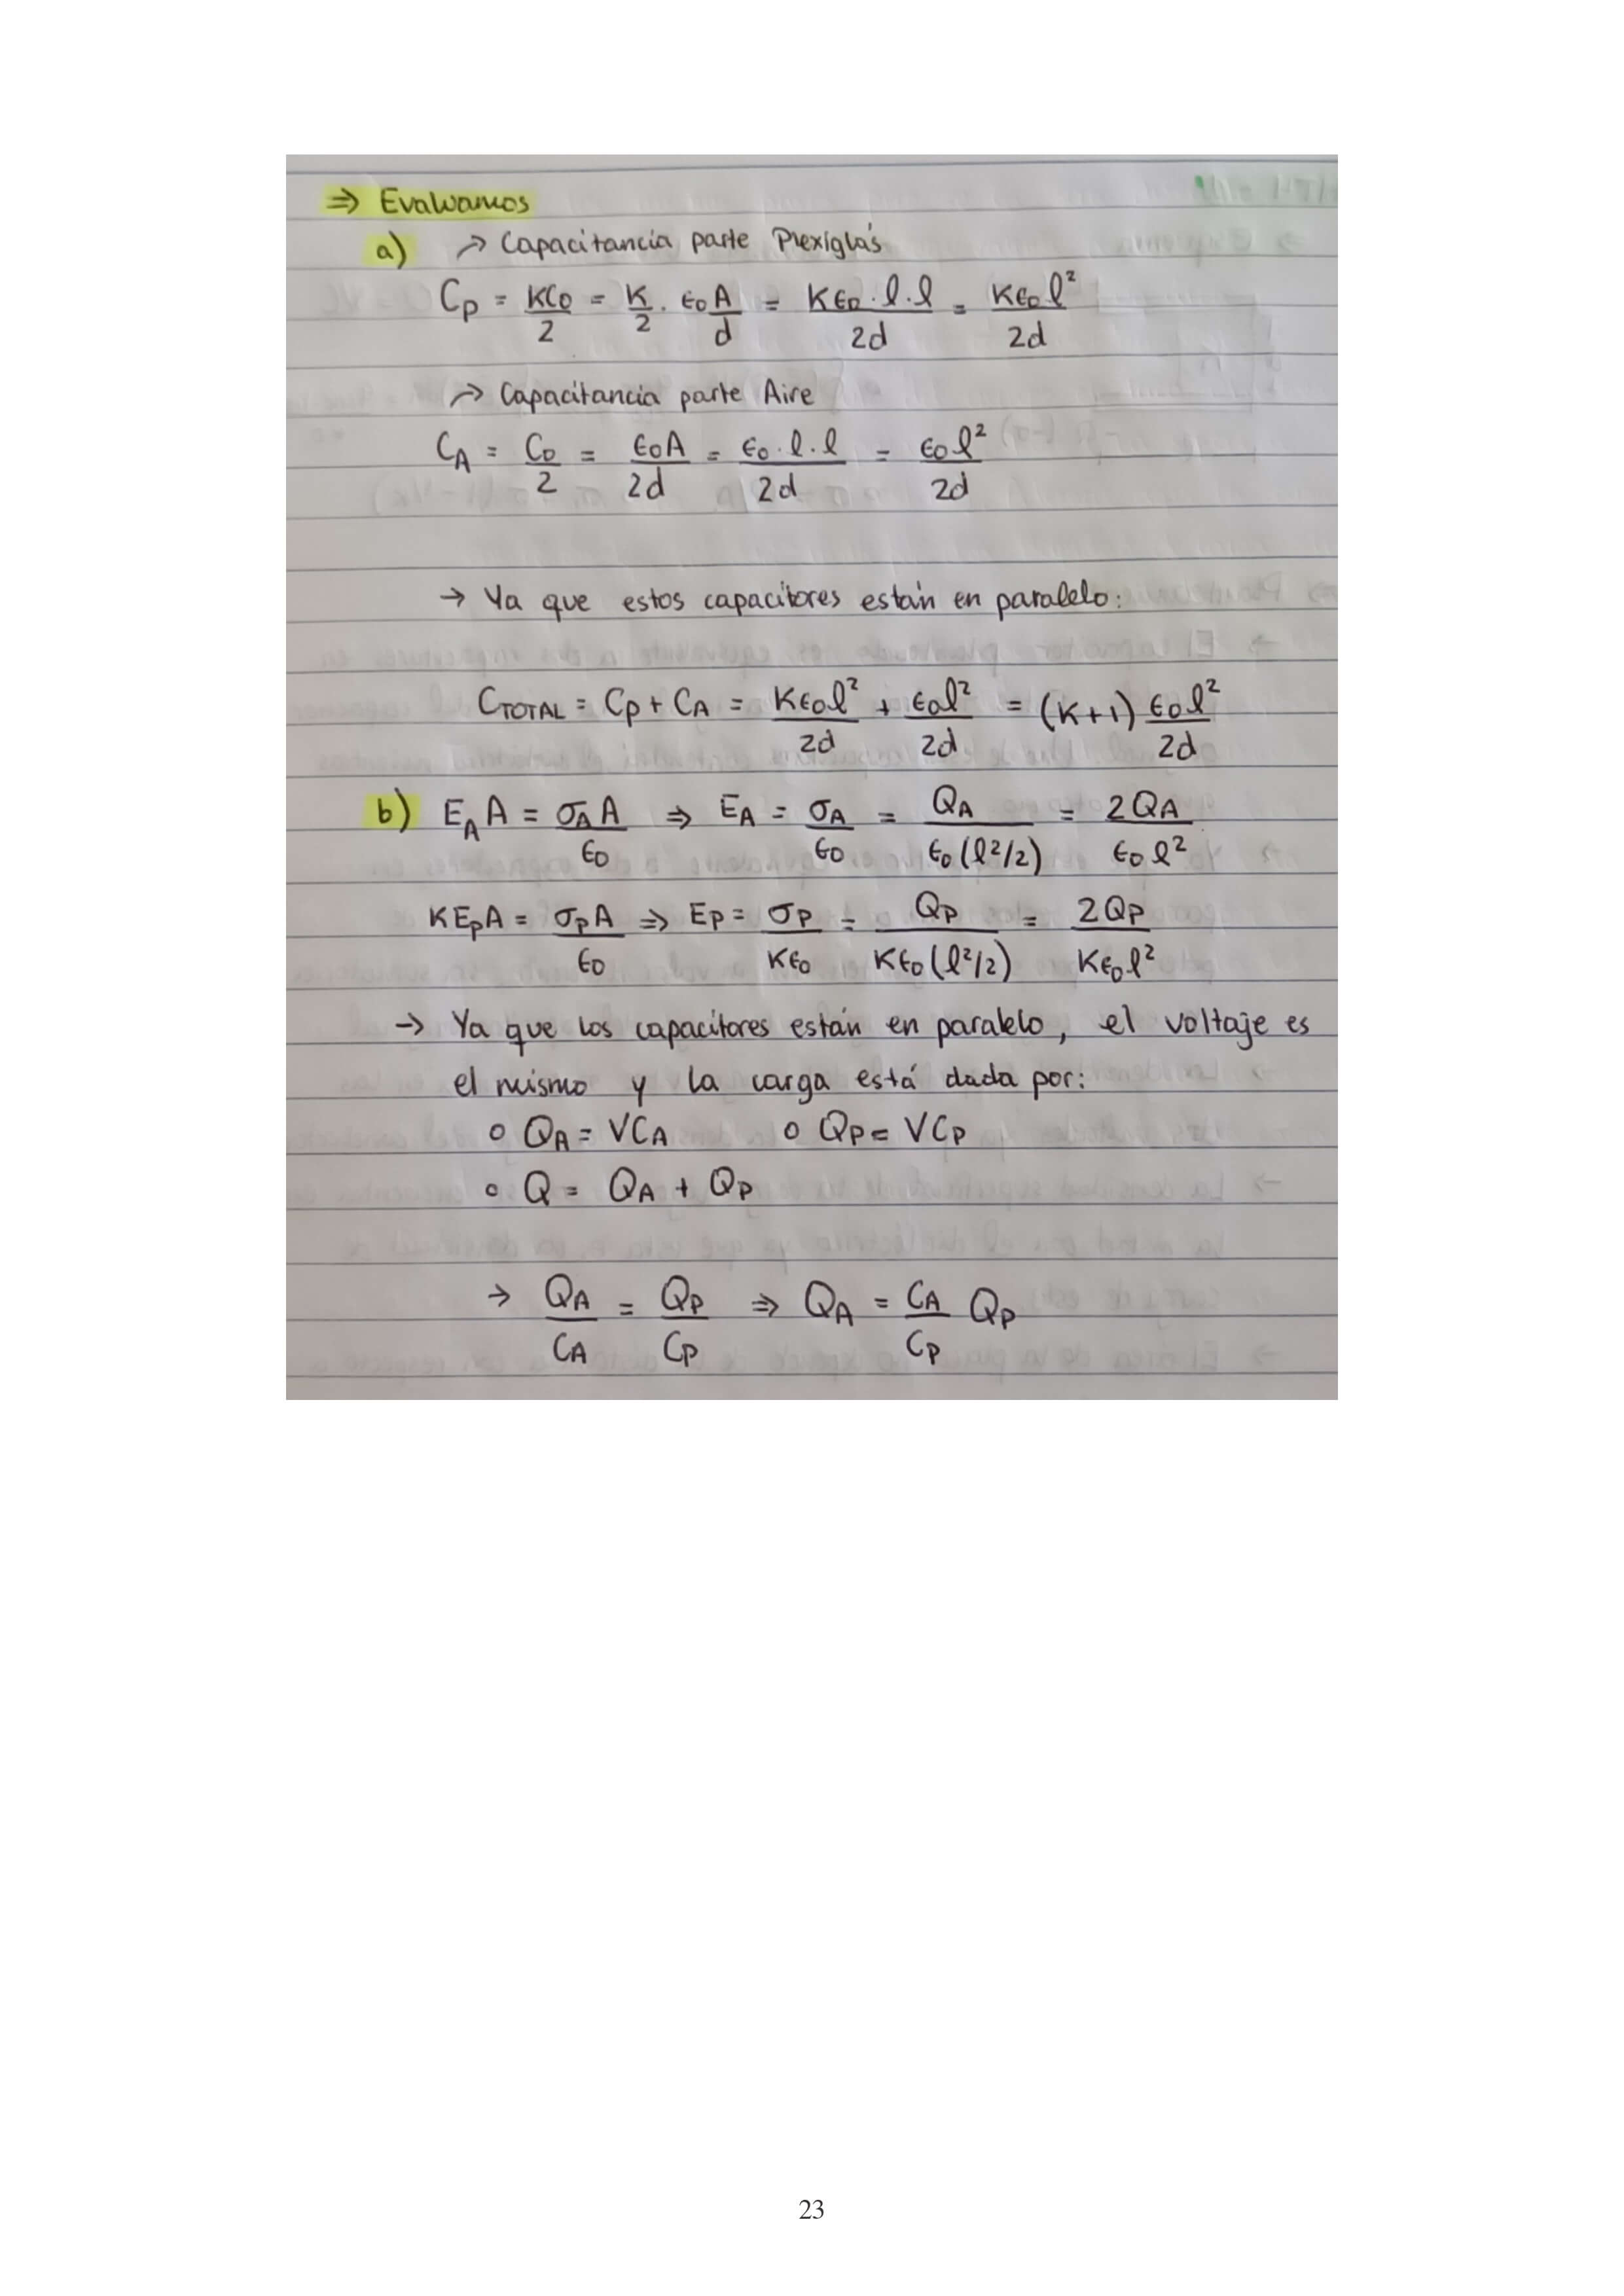 ⇒ Evaluamos
a) → Capacitancia parte Plexiglás
C_P = KC_0/2 = K/2 · ϵ_0 A/d = Kϵ_0 · l · l/2d = Kϵ_0 l²/2d
→ Capacitancia parte Aire
C_A = C_0/2 = ϵ_0 A/2d = ϵ_0 · l · l/2d = ϵ_0 l²/2d
→ Ya que estos capacitores están en paralelo:
C_TOTAL = C_P + C_A = Kϵ_0 l²/2d + ϵ_0 l²/2d = (K+1) ϵ_0 l²/2d
b) E_A A = σ_A A/ϵ_0 ⇒ E_A = σ_A/ϵ_0 = Q_A/ϵ_0 (l²/2) = 2Q_A/ϵ_0 l²
KE_P A = σ_P A/ϵ_0 ⇒ E_P = σ_P/Kϵ_0 = Q_P/Kϵ_0 (l²/2) = 2Q_P/Kϵ_0 l²
→ Ya que los capacitores están en paralelo, el voltaje es
el mismo y la carga está dada por:
o Q_A = VC_A o Q_P = VC_P
o Q = Q_A + Q_P
→ Q_A/C_A = Q_P/C_P ⇒ Q_A = C_A/C_P Q_P
23